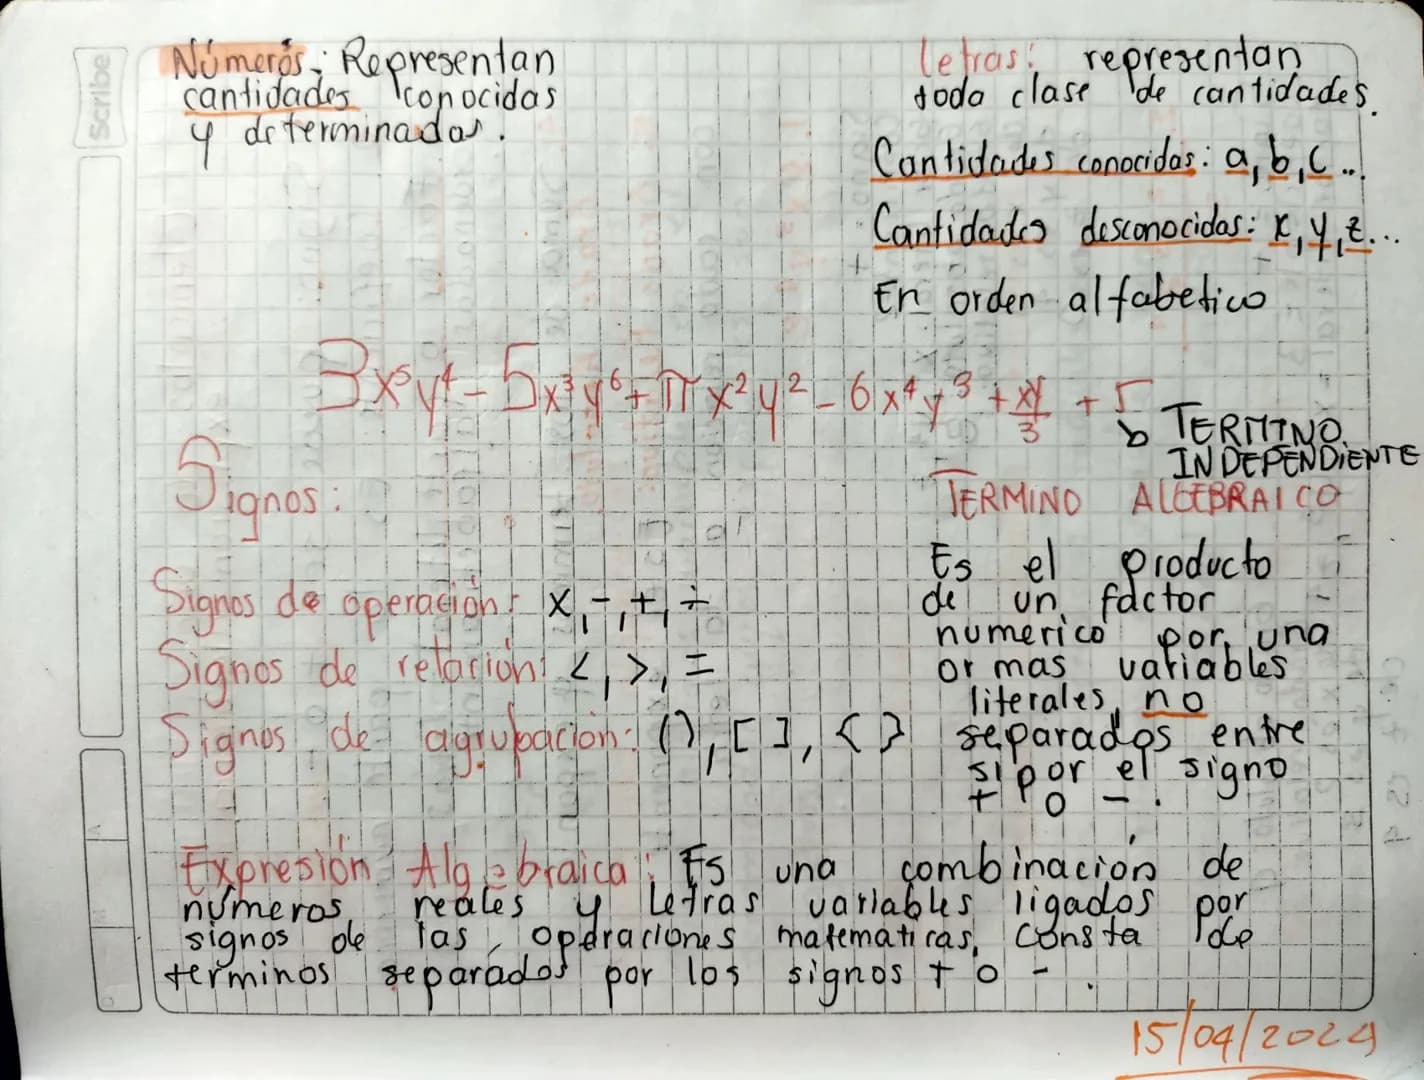 Scribe
Números: Representan
cantidades conocidas
y determinadas.
letras: representan
toda clase de cantidades.
Cantidades conocidas: a, b, c...
Cantidades desconocidas: x, y, z...
En orden alfabetico
3x⁵y⁴ - 5x³y⁶ + πx²y² - 6x⁴y³ + xy/3 + 5
b TERMINO
INDEPENDIENTE
Signos:
Signos de operación: x, -, +, ÷
Signos de relación: <, >, =
Signos de agrupación: (), [ ], { }
TERMINO ALGEBRAICO
Es el producto
de un factor
numerico por una
or mas variables
literales, no
separados entre
si por el signo
+ o -.
Expresión Algebraica: Es una combinación de
números reales y letras variables ligados por
signos de las operaciones matemáticas, consta de
terminos separados por los signos + o -.
15/04/2024